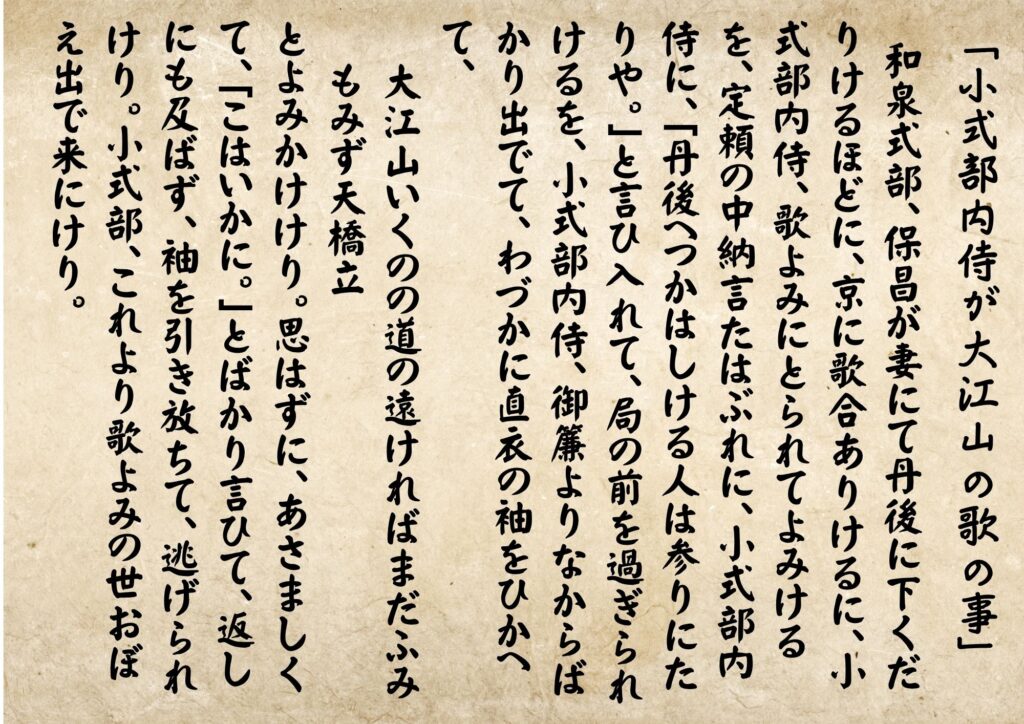 「小式部内侍が大江山の歌の事」
和泉式部、保昌が妻にて丹後に下くだ
りけるほどに、京に歌合ありけるに、小
式部内侍、歌よみにとられてよみける
を、定頼の中納言たはぶれに、小式部内
侍に、「丹後へつかはしける人は参りにた
りや。」と言ひ入れて、局の前を過ぎられ
けるを、小式部内侍、御簾よりなからば
かり出でて、わづかに直衣の袖をひかへ
て、
大江山いくのの道の遠ければまだふみ
もみず天橋立
とよみかけけり。思はずに、あさましく
て、「こはいかに。」とばかり言ひて、返し
にも及ばず、袖を引き放ちて、逃げられ
けり。小式部、これより歌よみの世おぼ
え出で来にけり。